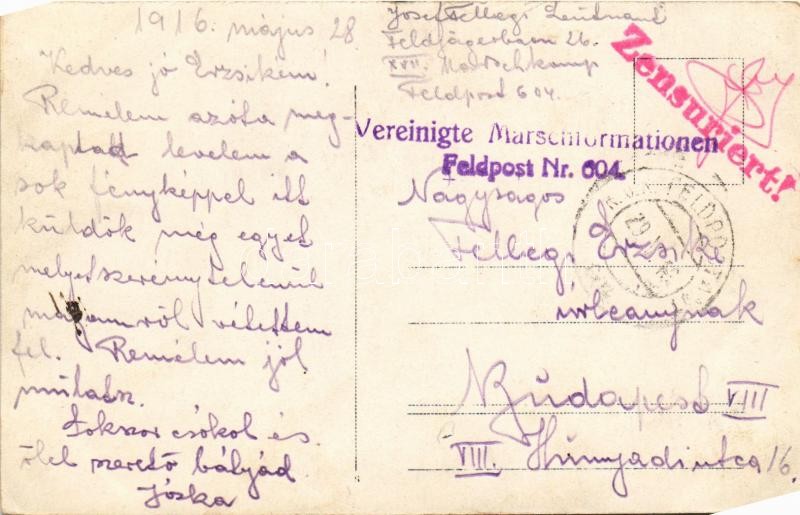 1916. május 28
Kedves jó Erzsikém!
Remélem azóta meg-
kaptad levelem a
sok fényképpel itt
küldök még egyet
melyet szerénytelenül
magamról vétettem
fel. Remélem jól
mulatsz.
Sokszor csókol és
ölel szerető bátyád
Jóska
Josef Fellegi Leutnant
Feldjägerbaon 26.
XVII. Marschkomp
Feldpost 604.
Zensuriert!
Vereinigte Marschformationen
Feldpost Nr. 604.
Nagyságos
Fellegi Erzsike
úrleánynak
Budapest VIII
VIII. Hunyadi utca 16.
K.u.K. FELDPOSTAMT